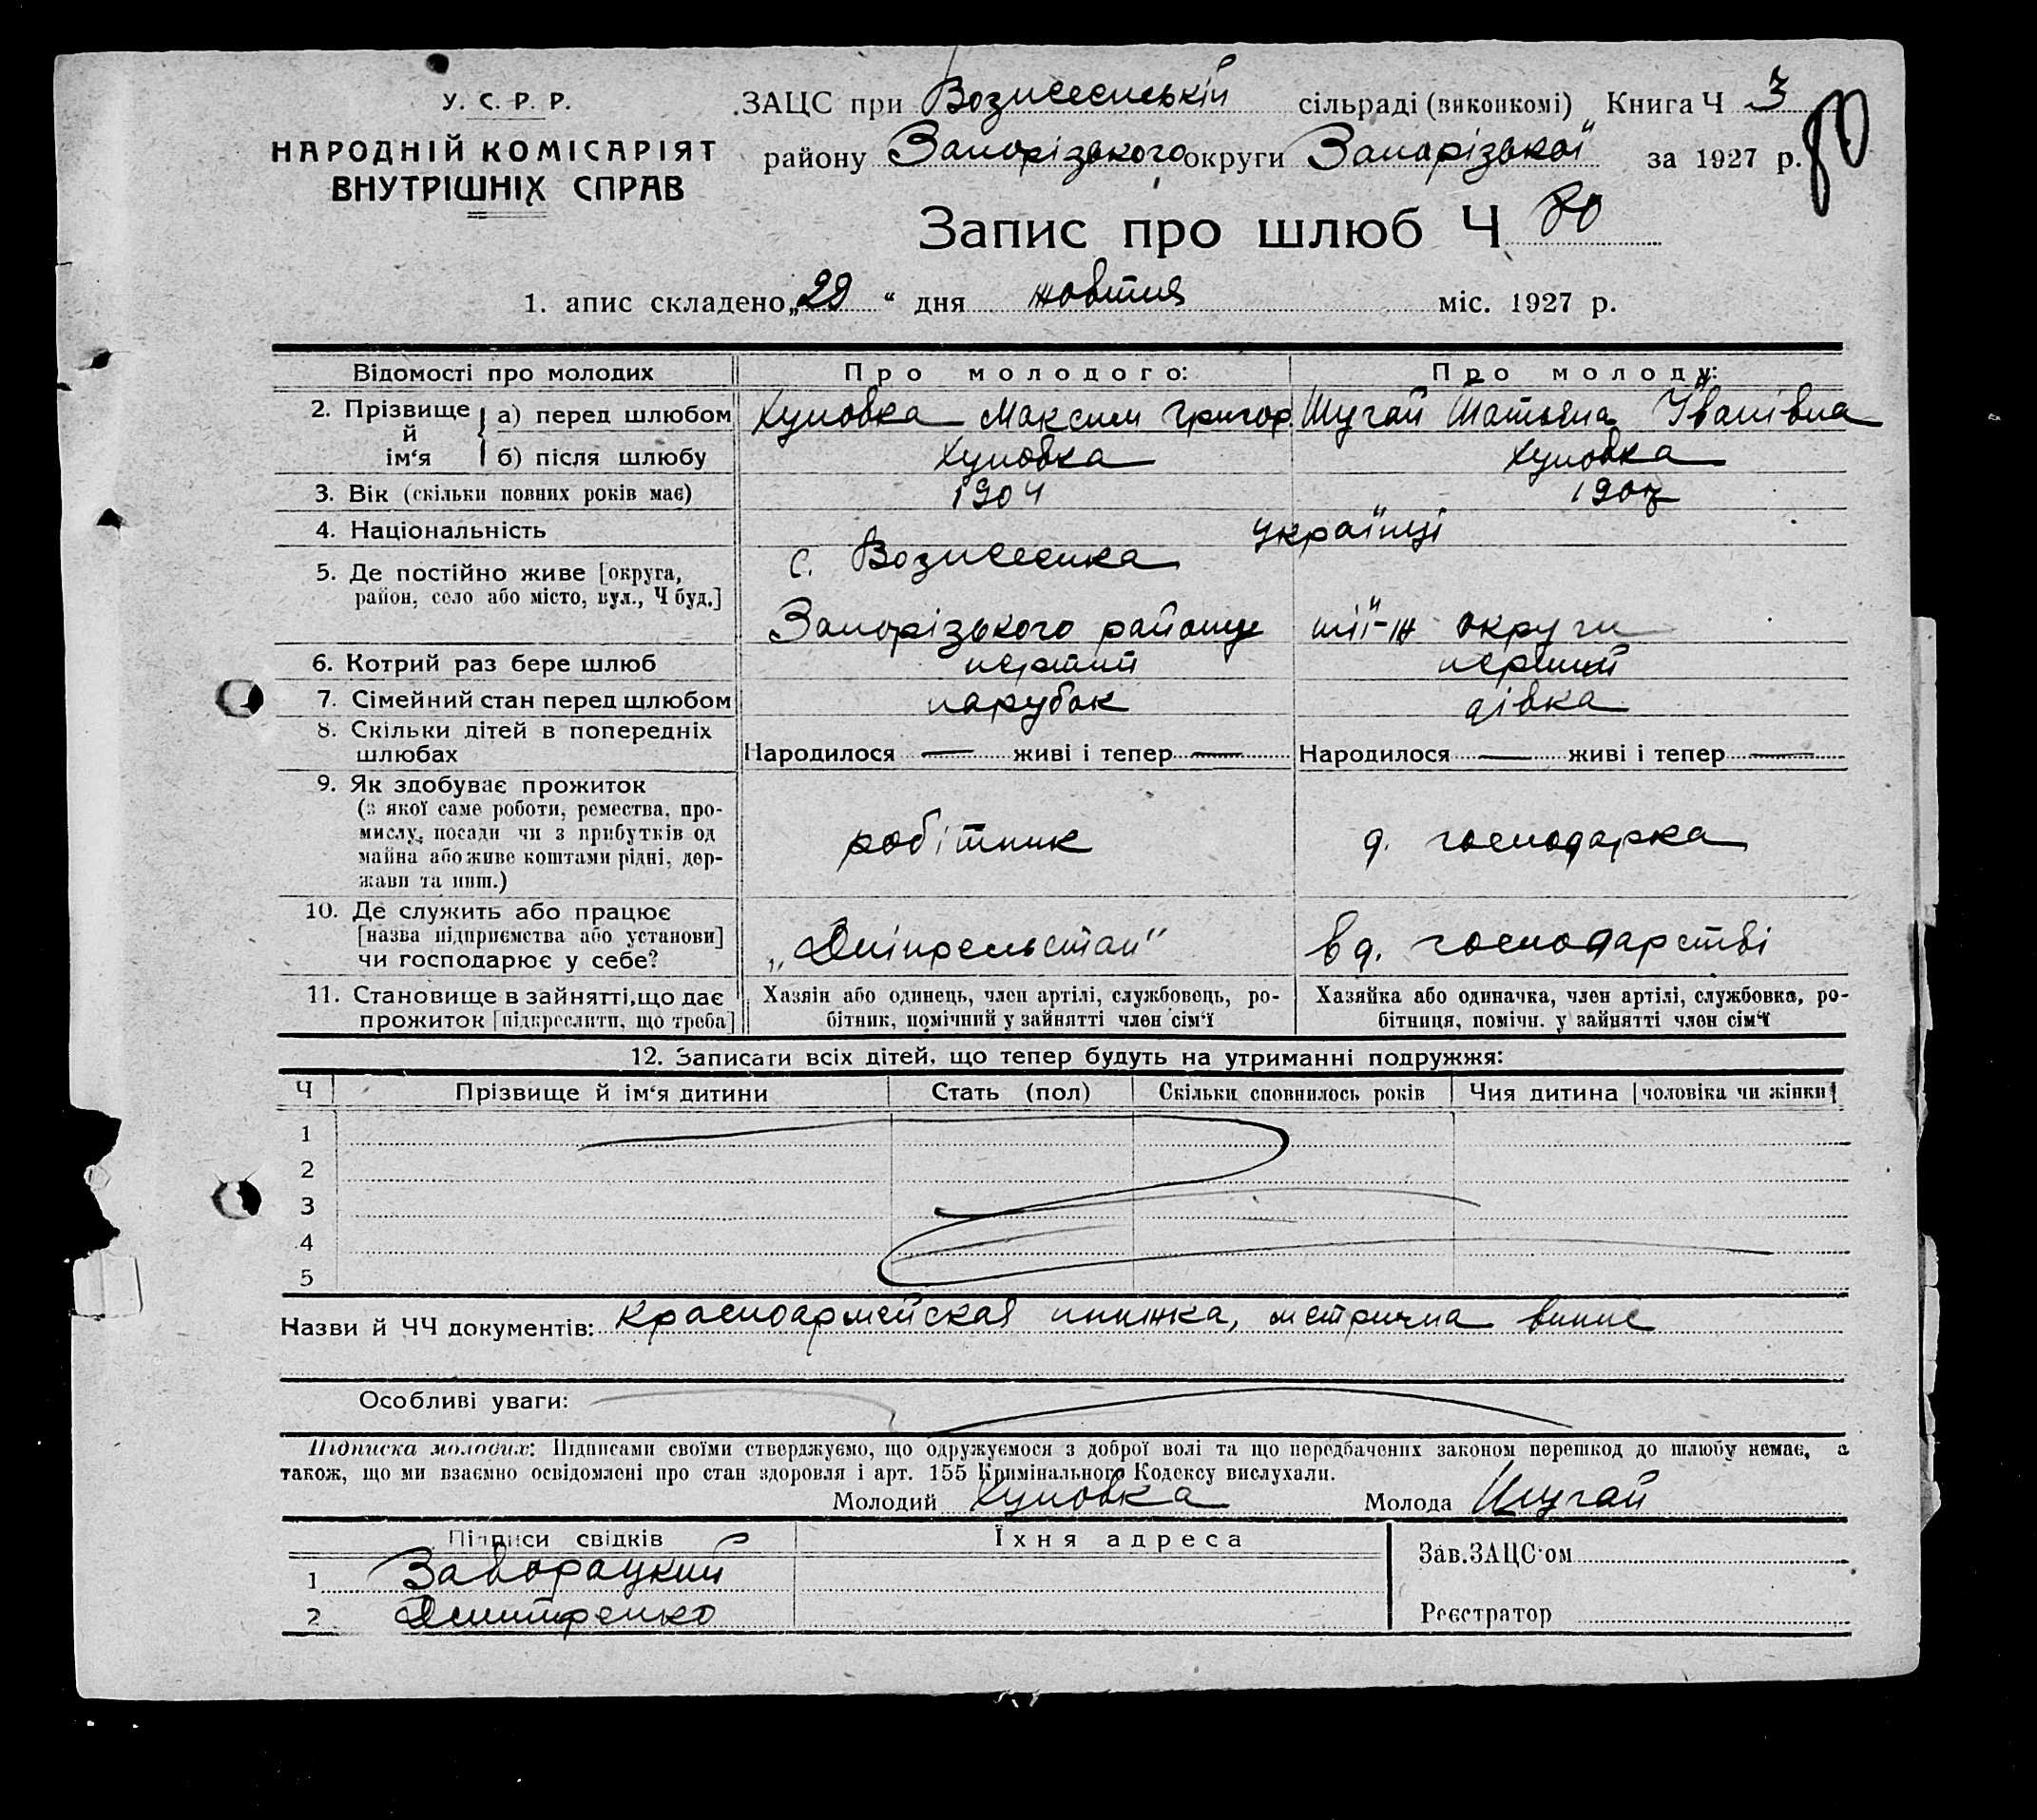 У. С. Р. Р.
НАРОДНІЙ КОМІСАРІЯТ
ВНУТРІШНІХ СПРАВ
ЗАЦС при Вознесенській сільраді (виконкомі) Книга Ч 3
району Запорізького округи Запорізької за 1927 р.
80
Запис про шлюб Ч 80
1. апис складено „29“ дня жовтня міс. 1927 р.
Відомості про молодих Про молодого: Про молоду:
2. Прізвище й ім‘я а) перед шлюбом Хуповка Максим Григор. Шугай Татьяна Іванівна
б) після шлюбу Хуповка Хуповка
3. Вік (скільки повних років має) 1904 1907
4. Національність українці
5. Де постійно живе [округа, с. Вознесенка
район, село або місто, вул., Ч буд.]
Запорізького району округи
6. Котрий раз бере шлюб перший перший
7. Сімейний стан перед шлюбом парубок дівка
8. Скільки дітей в попередніх
шлюбах Народилося — живі і тепер — Народилося — живі і тепер —
9. Як здобуває прожиток
(з якої саме роботи, ремества, про-
мислу, посади чи з прибутків од робітник д. господарка
майна або живе коштами рідні, дер-
жави та инш.)
10. Де служить або працює
[назва підприємства або установи] „Дніпрельстан“ в д. господарстві
чи господарює у себе?
11. Становище в зайнятті, що дає Хазяін або одинець, член артілі, службовець, ро- Хазяйка або одиначка, член артілі, службовка, ро-
прожиток [підкреслити, що треба] бітник, помічний у зайнятті член сім‘ї бітниця, помічн. у зайнятті член сім‘ї
12. Записати всіх дітей, що тепер будуть на утриманні подружжя:
Ч Прізвище й ім‘я дитини Стать (пол) Скільки сповнилось років Чия дитина [чоловіка чи жінки]
1
2
3
4
5
Назви й ЧЧ документів: Красноармейская книжка, метрична випис
Особливі уваги:
Підписка молодих: Підписами своїми стверджуємо, що одружуємося з доброї волі та що передбачених законом перешкод до шлюбу немає, а
також, що ми взаємно освідомлені про стан здоровля і арт. 155 Кримінального Кодексу вислухали.
Молодий Хуповка Молода Шугай
Підписи свідків Їхня адреса
Зав. ЗАЦС‘ом
1 Заворацкий
2 Дмитренко
Реєстратор